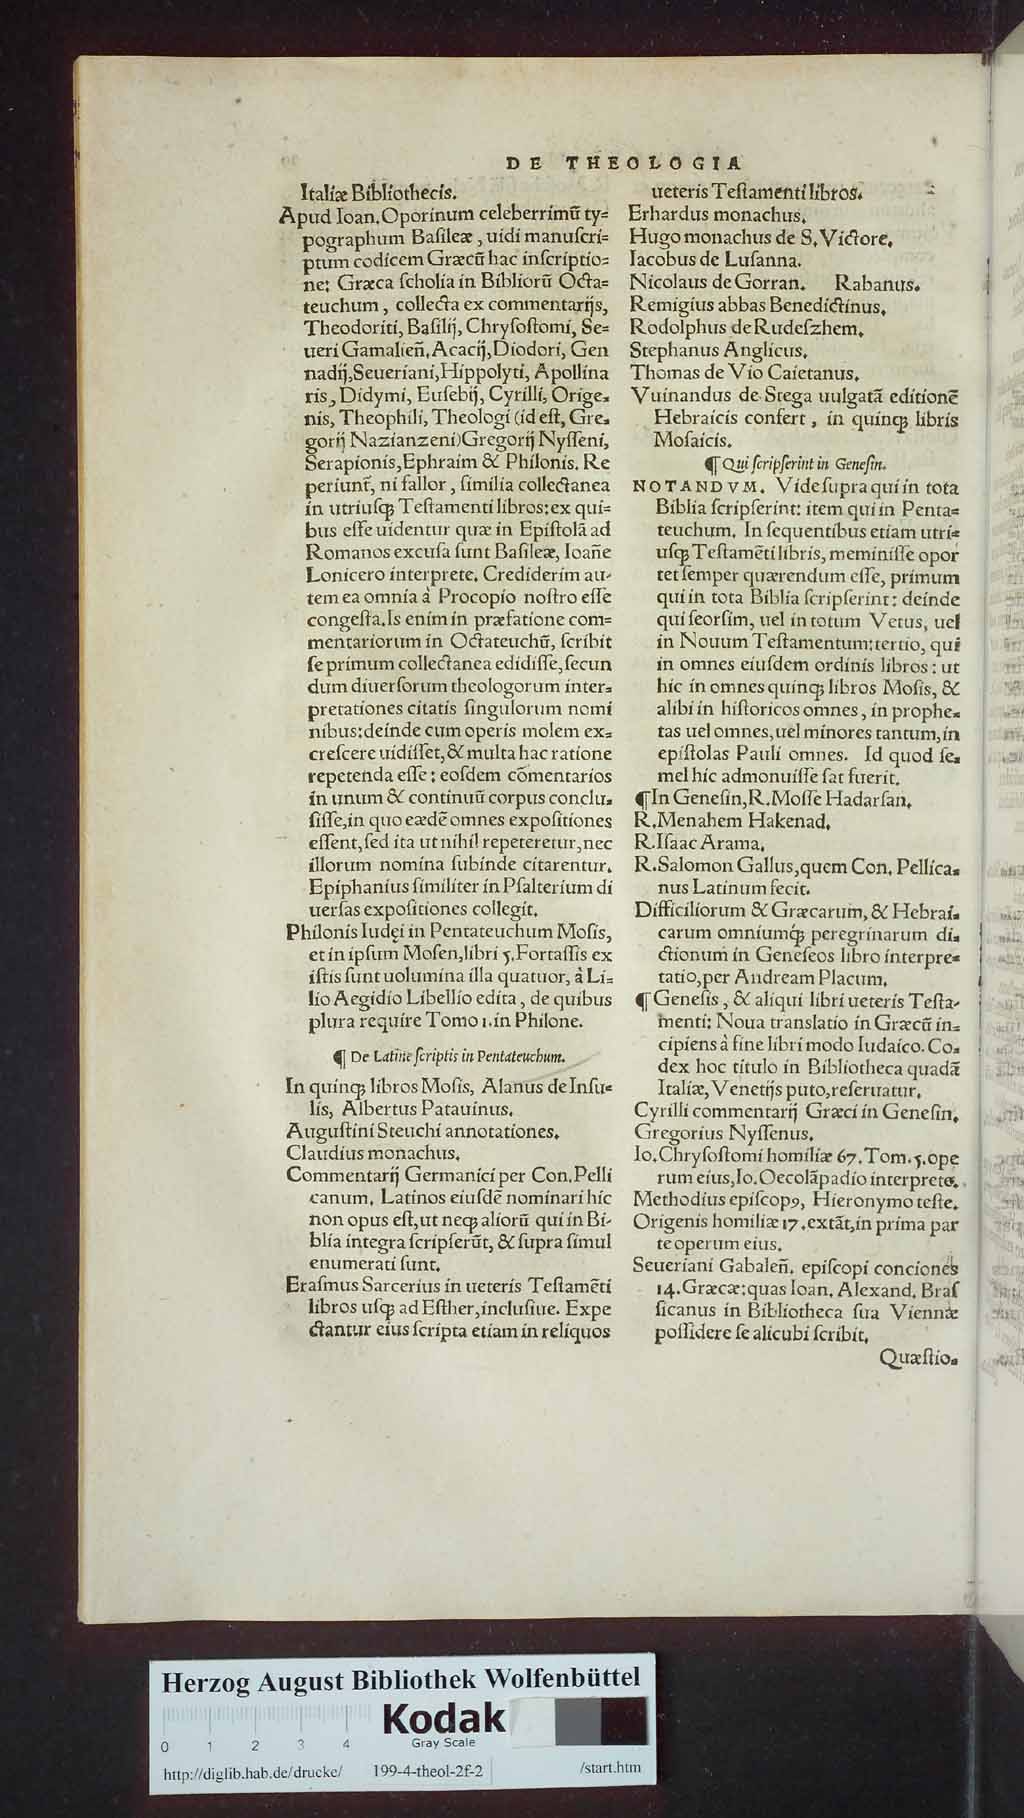 DE THEOLOGIA
Italiæ Bibliothecis.
Apud Ioan. Oporinum celeberrimũ ty=
pographum Basileæ, uidi manuſcri=
ptum codicem Græcũ hac inſcriptio=
ne: Græca ſcholia in Bibliorũ Octa=
teuchum, collecta ex commentarijs,
Theodoriti, Baſilij, Chryſoſtomi, Se=
ueri Gamalieñ. Acacij, Diodori, Gen
nadij, Seueriani, Hippolyti, Apollina
ris, Didymi, Euſebij, Cyrilli, Orige=
nis, Theophili, Theologi (id eſt, Gre=
gorij Nazianzeni) Gregorij Nyſſeni,
Serapionis, Ephraim & Philonis. Re
periunt᷑, ni fallor, ſimilia collectanea
in utriuſq; Teſtamenti libros: ex qui=
bus eſſe uidentur quæ in Epiſtolã ad
Romanos excuſa ſunt Baſileæ, Ioañe
Lonicero interprete. Crediderim au=
tem ea omnia à Procopio noſtro eſſe
congeſta. Is enim in præfatione com=
mentariorum in Octateuchũ, ſcribit
ſe primum collectanea edidiſſe, ſecun
dum diuerſorum theologorum inter=
pretationes citatis ſingulorum nomi
nibus: deinde cum operis molem ex=
creſcere uidiſſet, & multa hac ratione
repetenda eſſe: eoſdem cõmentarios
in unum & continuũ corpus conclu=
ſiſſe, in quo eædẽ omnes expoſitiones
eſſent, ſed ita ut nihil repeteretur, nec
illorum nomina ſubinde citarentur.
Epiphanius ſimiliter in Pſalterium di
uerſas expoſitiones collegit.
Philonis Iudęi in Pentateuchum Moſis,
et in ipſum Moſen, libri 5. Fortaſſis ex
iſtis ſunt uolumina illa quatuor, à Li=
lio Aegidio Libellio edita, de quibus
plura require Tomo 1. in Philone.
¶ De Latine ſcriptis in Pentateuchum.
In quinq; libros Moſis, Alanus de Inſu=
lis, Albertus Patauinus.
Auguſtini Steuchi annotationes.
Claudius monachus.
Commentarij Germanici per Con. Pelli
canum. Latinos eiuſdẽ nominari hic
non opus eſt, ut neq; aliorũ qui in Bi=
blia integra ſcripſerũt, & ſupra ſimul
enumerati ſunt.
Eraſmus Sarcerius in ueteris Teſtamẽti
libros uſq; ad Eſther, incluſiue. Expe
ctantur eius ſcripta etiam in reliquos
ueteris Teſtamenti libros.
Erhardus monachus.
Hugo monachus de S. Victore.
Iacobus de Luſanna.
Nicolaus de Gorran. Rabanus.
Remigius abbas Benedictinus.
Rodolphus de Rudeſzhem.
Stephanus Anglicus.
Thomas de Vio Caietanus.
Vuinandus de Stega uulgatã editionẽ
Hebraicis confert, in quinq; libris
Moſaicis.
¶ Qui ſcripſerint in Geneſin.
NOTANDVM. Vide ſupra qui in tota
Biblia ſcripſerint: item qui in Penta=
teuchum. In ſequentibus etiam utri=
uſq; Teſtamẽti libris, meminiſſe opor
tet ſemper quærendum eſſe, primum
qui in tota Biblia ſcripſerint: deinde
qui ſeorſim, uel in totum Vetus, uel
in Nouum Teſtamentum: tertio, qui
in omnes eiuſdem ordinis libros: ut
hic in omnes quinq; libros Moſis, &
alibi in hiſtoricos omnes, in prophe=
tas uel omnes, uel minores tantum, in
epiſtolas Pauli omnes. Id quod ſe=
mel hic admonuiſſe ſat fuerit.
¶ In Geneſin, R. Moſſe Hadarſan.
R. Menahem Hakenad.
R. Iſaac Arama.
R. Salomon Gallus, quem Con. Pellica=
nus Latinum fecit.
Difficiliorum & Græcarum, & Hebrai=
carum omniumq; peregrinarum di=
ctionum in Geneſeos libro interpre=
tatio, per Andream Placum.
¶ Geneſis, & aliqui libri ueteris Teſta=
menti: Noua translatio in Græcũ in=
cipiens à fine libri modo Iudaico. Co=
dex hoc titulo in Bibliotheca quadã
Italiæ, Venetijs puto, reſeruatur.
Cyrilli commentarij Græci in Geneſin.
Gregorius Nyſſenus.
Io. Chryſoſtomi homiliæ 67. Tom. 5. ope
rum eius, Io. Oecolãpadio interprete.
Methodius epiſcopꝰ, Hieronymo teſte.
Origenis homiliæ 17. extãt, in prima par
te operum eius.
Seueriani Gabaleñ. epiſcopi conciones
14. Græcæ: quas Ioan. Alexand. Braſ
ſicanus in Bibliotheca ſua Viennæ
poſſidere ſe alicubi ſcribit.
Quæſtio=
Herzog August Bibliothek Wolfenbüttel
Kodak
Gray Scale
0 1 2 3 4
http://diglib.hab.de/drucke/ 199-4-theol-2f-2 /start.htm